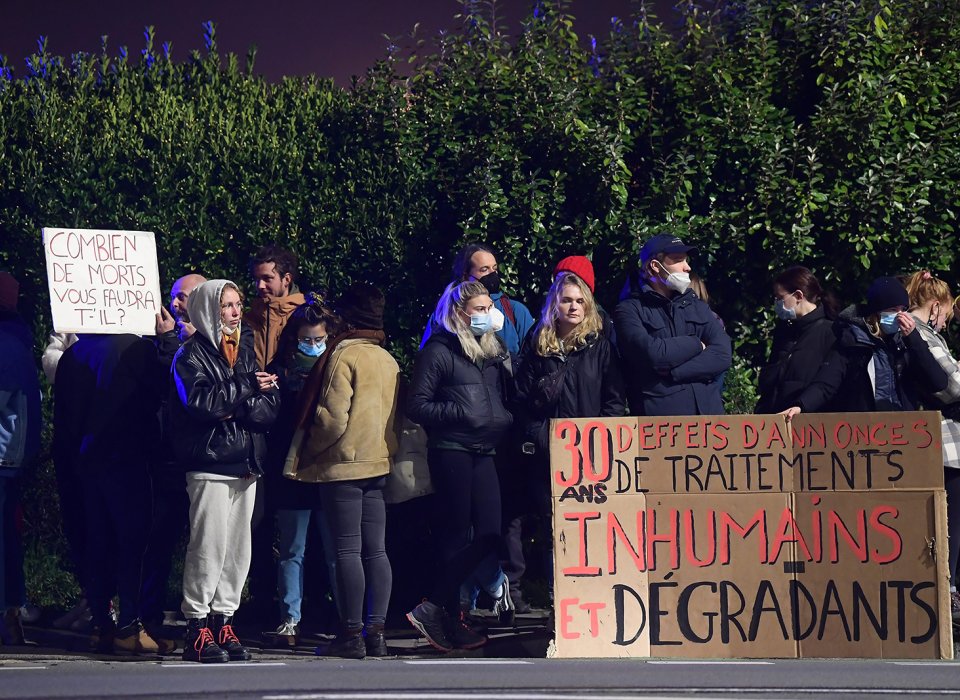 COMBIEN
DE MORTS
VOUS FAUDRA
T'IL?
30 D'EFFETS D'ANNONCES
ANS DE TRAITEMENTS
INHUMAINS
ET DÉGRADANTS